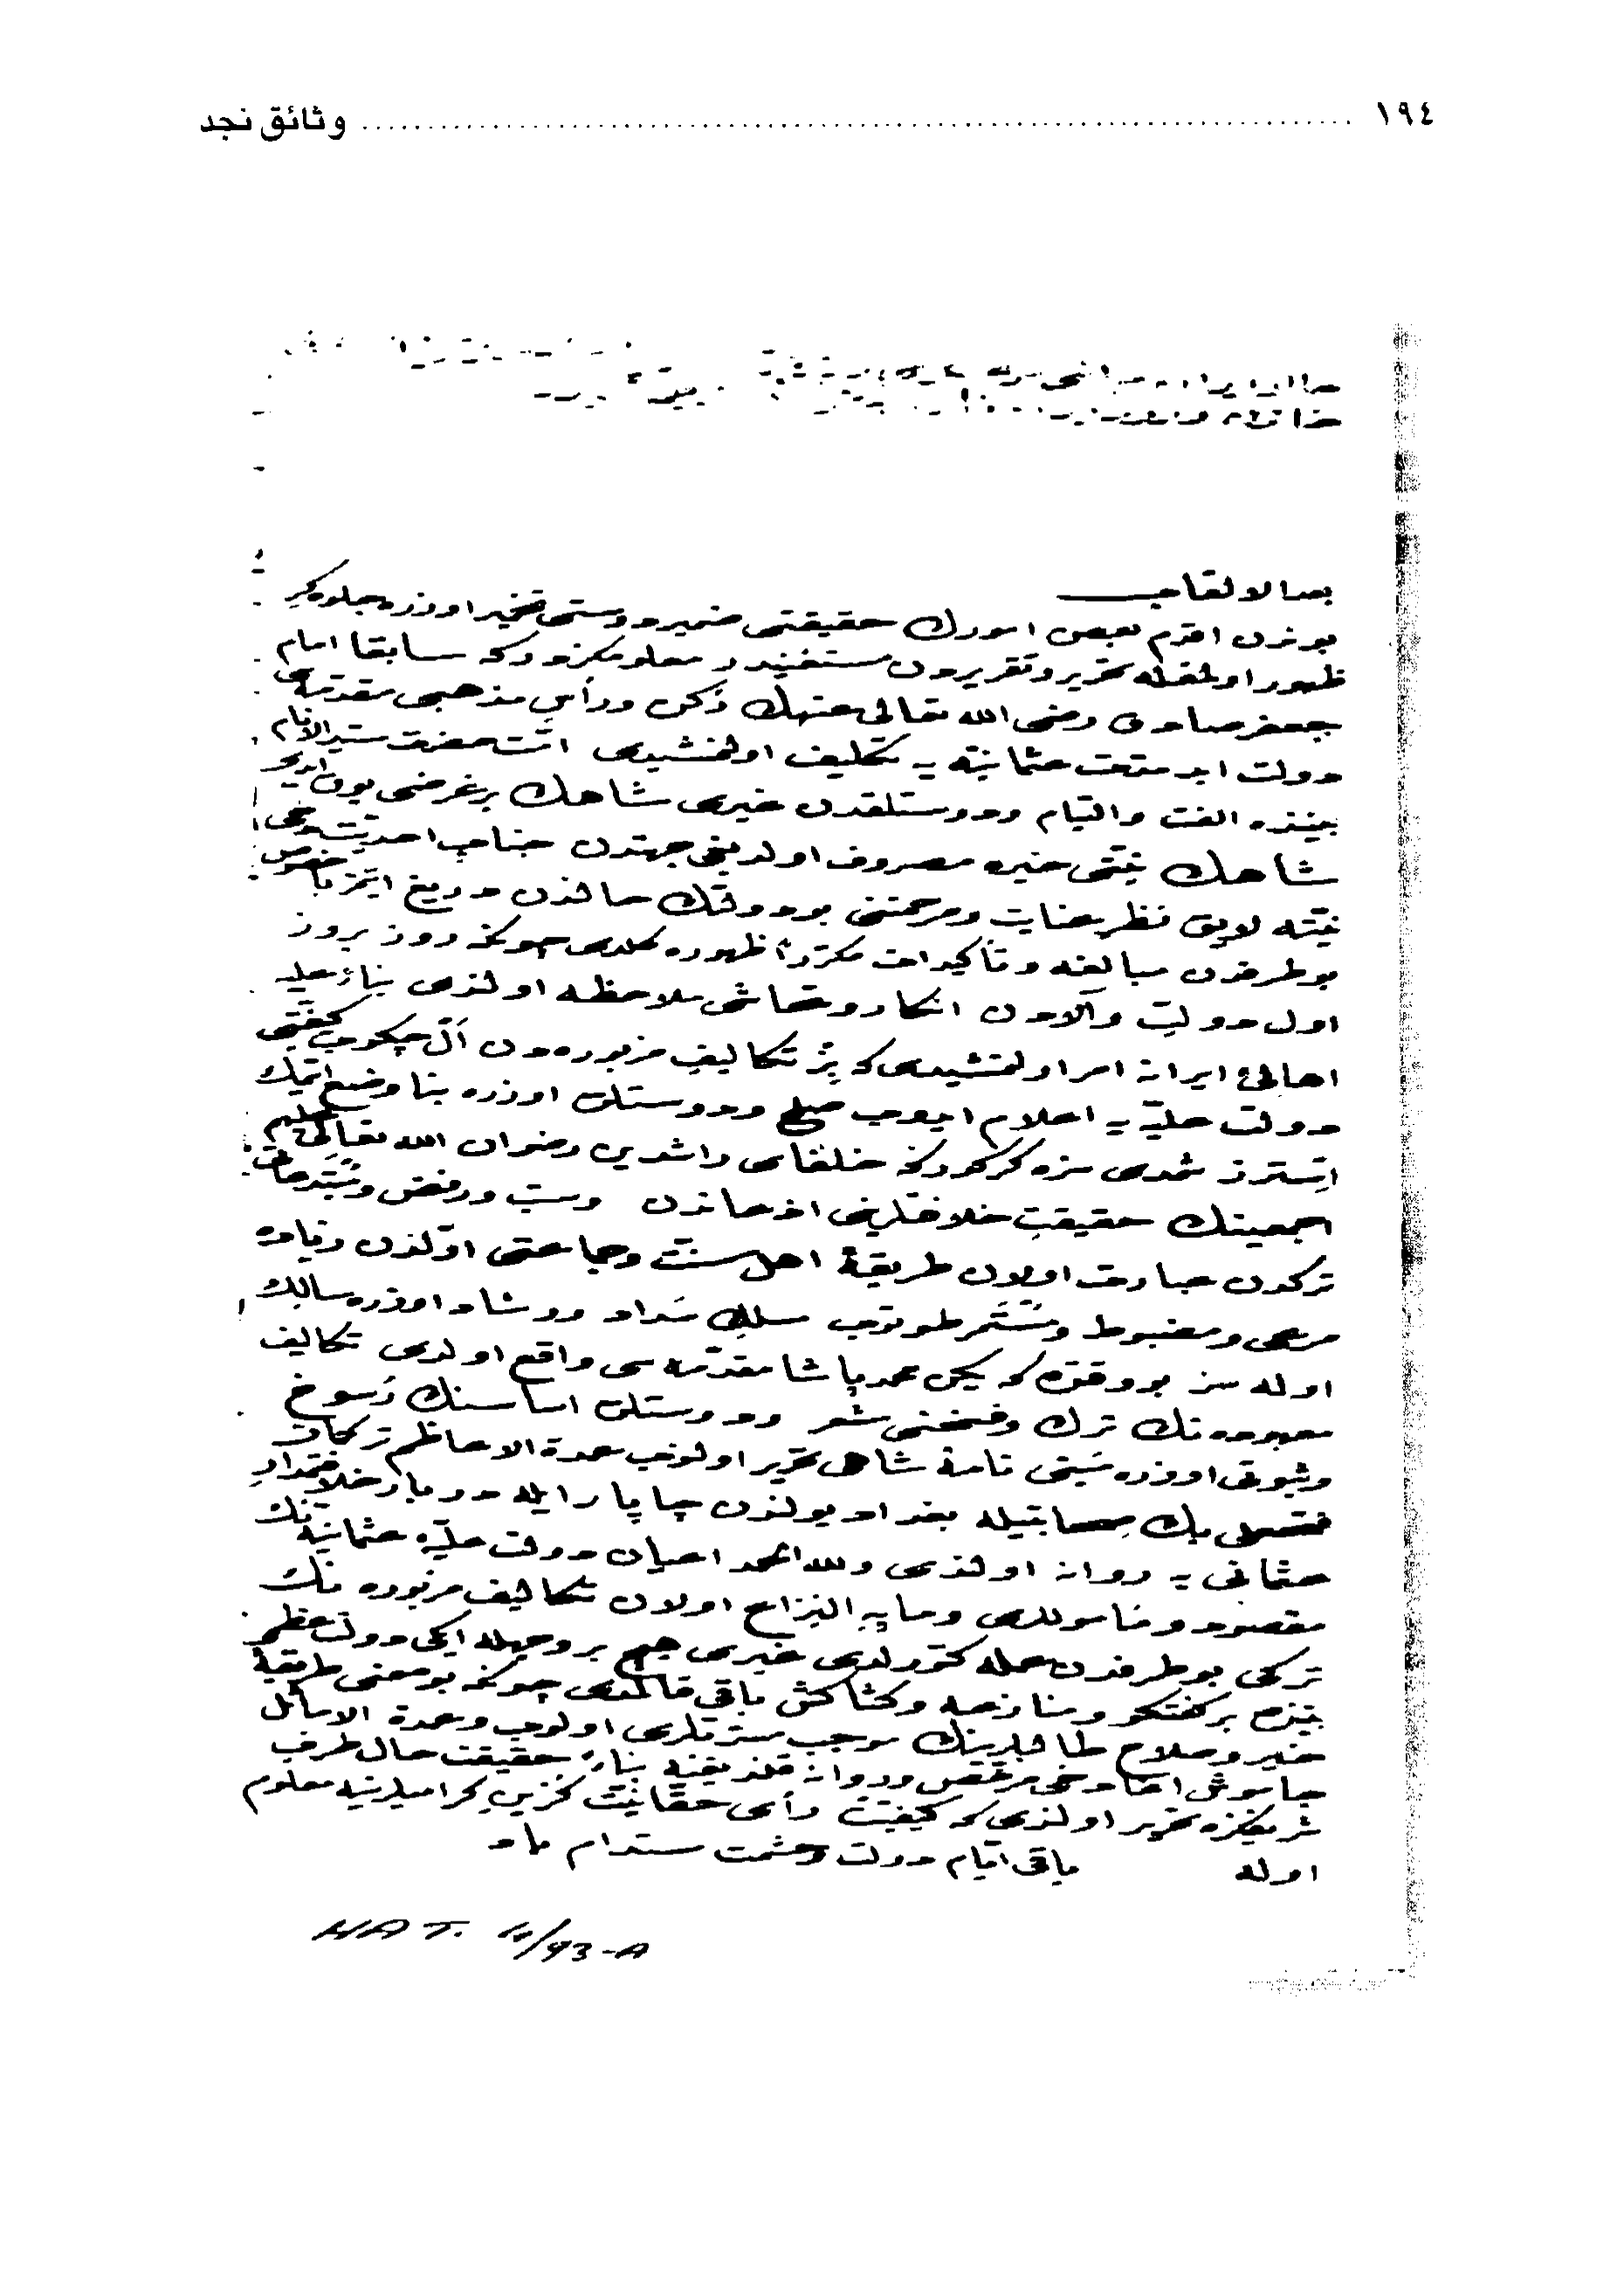 ١٩٤ ........ وثائق نجد
بعد الالقاب
بوندن اقدم بعض امورك حقيقتى ضمير دوستى تخمير اوزره جلوه كر
ظهور اولمغله تحرير وتقريردن مستغنيدر معلومكزدركه سابقا امام
جعفر صادق رضى الله تعالى عنهك ركن ورأس مذهبى مقدمه سى
دولت ابد مدت عثمانيه يه تكليف اولنمشيدى امت حضرت سيد الانام
بيننده الفت والتيام ودوستلقدن غيرى شاهك بر غرضى يوق ايدى
شاهك نيتى خيره مصروف اولديغى جهتدن جناب احديت دخى
نيته لايق نظر عنايت ومرحمتنى بو دولتك حالندن دريغ ايتمز باخصوص
بو طرفدن مبالغه وتأكيدات مكررا ظهوره كلدى چونكه روز بروز
اول دولت والادن انكار وتحاشى ملاحظه اولندى بناء عليه
اهالئ ايرانه امر اولنمشيدى كه بز تكاليف مزبوره دن ال چكوب كيفيتى
دولت عليه يه اعلام ايدوب صلح ودوستلق اوزره بنا وضع ايتمك
استرز شمدى سزه كركدركه خلفاى راشدين رضوان الله تعالى عليهم
اجمعينك حقيقت خلافتلرينى اذعاندن وسب ورفض
تركدن عبارت اولان طريقۀ اهل سنت وجماعتى اولكدن زياده
مرعى ومضبوط ومستمر طوتوب مسلك سداد ورشاد اوزره سالك
اوله سز بو وقتده كه يكن محمد پاشا مقدمه سى واقع اولدى تكاليف
معهوده نك ترك وفسخنى مشعر ودوستلق اساسنك رسوخ
وثبوتى اوزره مبنى نامۀ شاهى تحرير اولنوب عمدة الاعاظم تركان
فتحعلى بك مصاحبتيله بغداد يولندن چاپار ايله دربار خلافتمدار
عثمانى يه روانه اولندى ولله الحمد اعيان دولت عليۀ عثمانيه نك
مقصود ومأموللرى وما به النزاع اولان تكاليف مزبوره نك
تركى بو طرفدن عمله كتورلدى غيرى هيچ بر وجهله ايكى دولت عظمى
بيننده بر كفتكو ومنازعه وكشاكش باقى قالمدى چونكه بو معنى طريقۀ
خير وصلاح طالبلرينك موجب مسرتلرى اولوب وعمدة الاماثل
چاموش اغا دخى مرخص وروانه قلنديغنه بناء حقيقت حال طرف
شريفكزه تحرير اولندى كه كيفيت رأى حقانيت كزين كراميلرينه معلوم
اوله باقى ايام دولت وحشمت مستدام باد
HAT. ‎/93-A